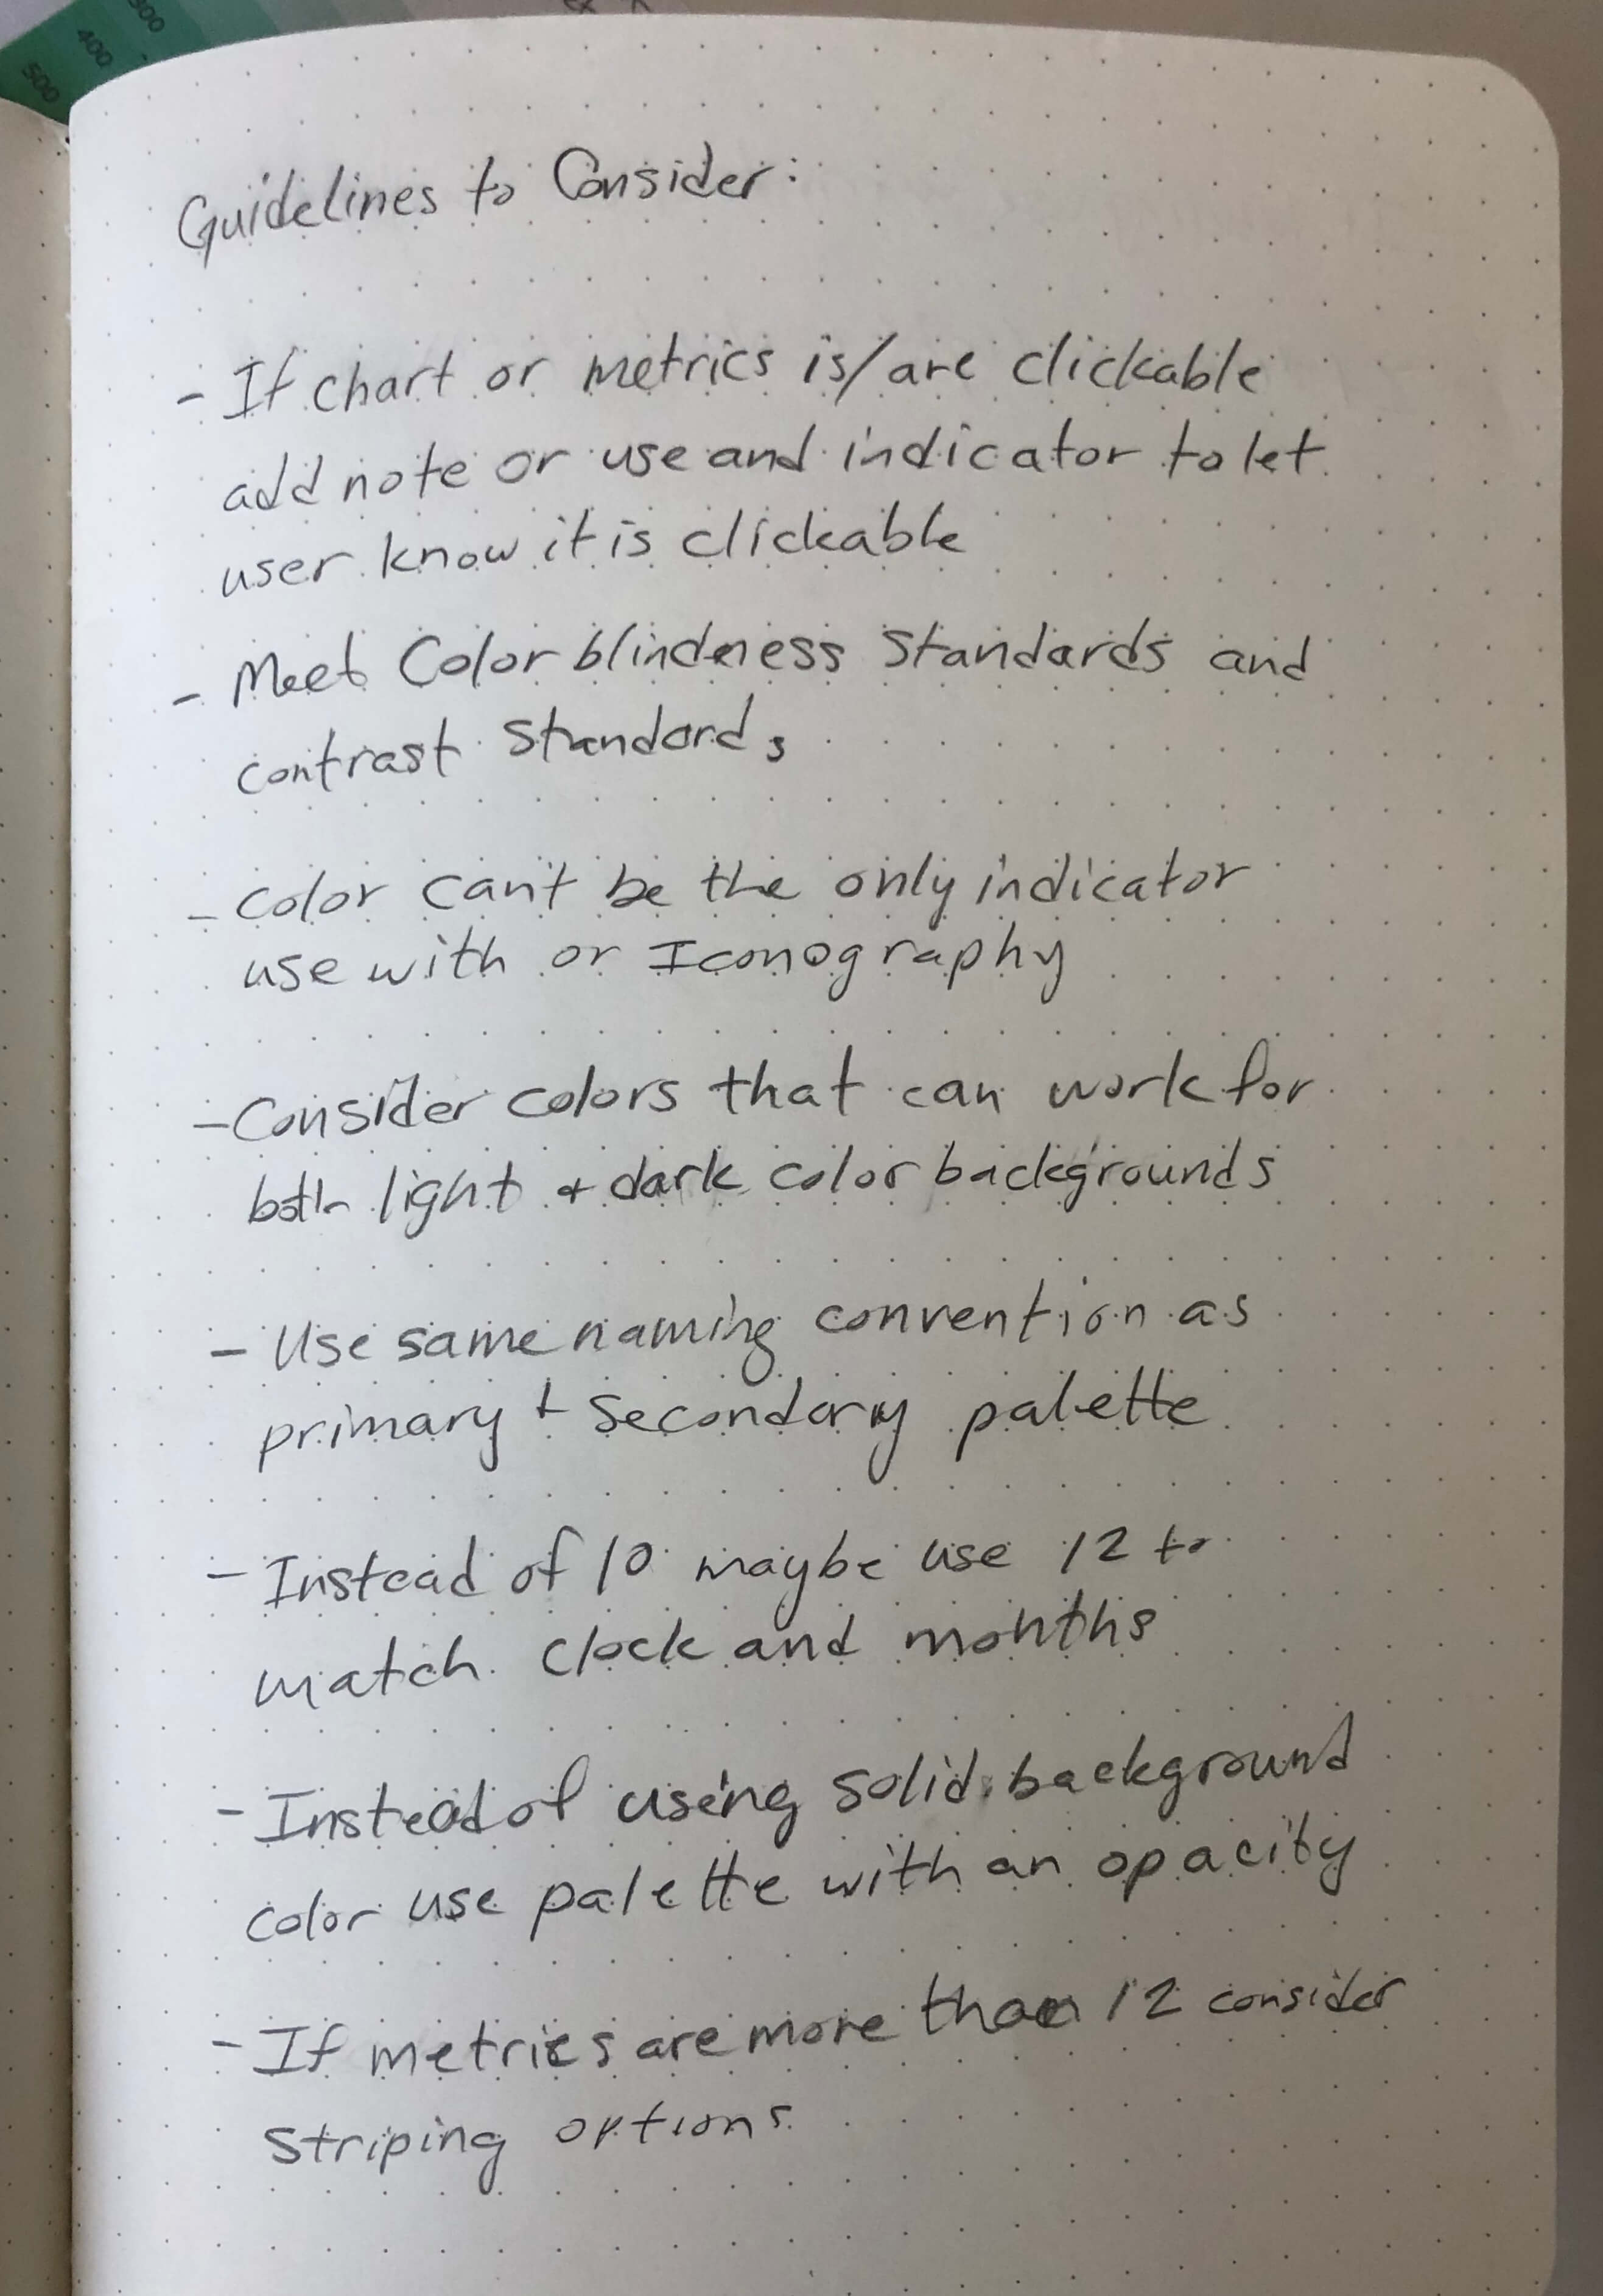 300
400
500
Guidelines to Consider:
- If chart or metrics is/are clickable
add note or use and indicator to let
user know it is clickable
- Meet Color blindness Standards and
contrast Standards
- Color can't be the only indicator
use with or Iconography
- Consider colors that can work for
both light + dark color backgrounds
- Use same naming convention as
primary + Secondary palette
- Instead of 10 maybe use 12 to
match clock and months
- Instead of using solid background
color use palette with an opacity
- If metrics are more than 12 consider
striping options